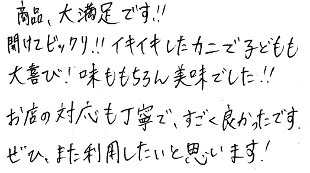 商品、大満足です!!
開けてビックリ!!イキイキしたカニで子どもも
大喜び!味ももちろん美味でした!!
お店の対応も丁寧で、すごく良かったです。
ぜひ、また利用したいと思います!